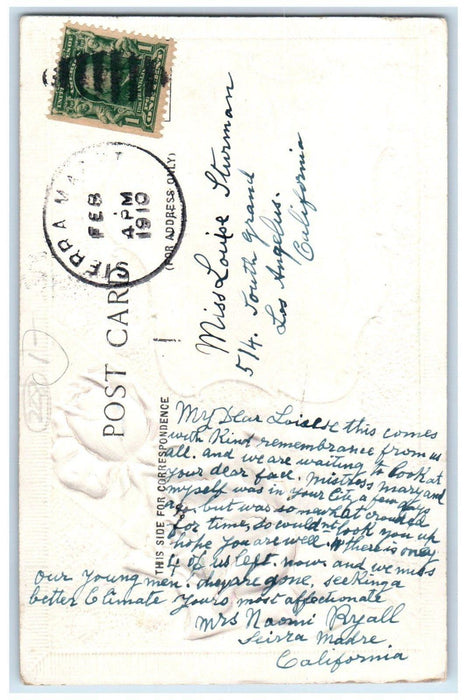 FEB
4 PM
1910
POST CARD
THIS SIDE FOR CORRESPONDENCE
(FOR ADDRESS ONLY)
Miss Louise Sturman
514. South Grand
Los Angelus.
California
My Dear Loisese this comes
with Kind remembrance from us
all. and we are waiting to look at
your dear face. Mistress Mary and
myself was in your City a few days
but was somewhat crouded
for time, so couldn't look you up
hope you are well. there is only
4 of us left. now. and we miss
our young men. they are gone, seeking a
better Climate Yours most affectionate
Mrs Naomi Ryall
Seirra Madre
California